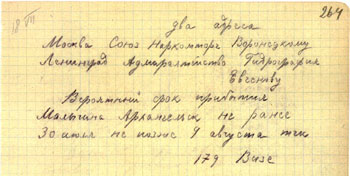 264
18 VII
два адреса
Москва Союз Наркомторг Воронецкому
Ленинград Адмиралтейство Гидрография
Евгенову
Вероятный срок прибытия
Малыгина Архангельск не ранее
30 июля не позже 9 августа тчк
179 Визе